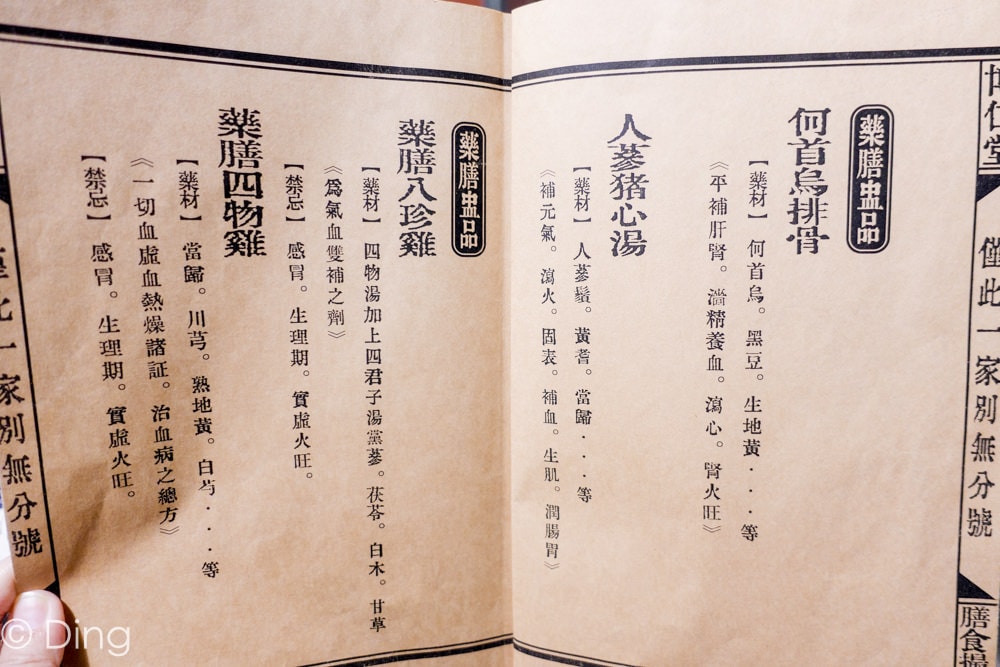 仁堂
僅此一家別無分號
膳食
藥膳盅品
何首烏排骨
【藥材】 何首烏。黑豆。生地黃‧‧‧等
《平補肝腎。濇精養血。瀉心。腎火旺》
人蔘猪心湯
【藥材】 人蔘鬚。黃耆。當歸‧‧‧等
《補元氣。瀉火。固表。補血。生肌。潤腸胃》
藥膳盅品
藥膳八珍雞
【藥材】 四物湯加上四君子湯黨蔘。茯苓。白木。甘草
《為氣血雙補之劑》
【禁忌】 感冒。生理期。實虛火旺。
藥膳四物雞
【藥材】 當歸。川芎。熟地黃。白芍‧‧‧等
《一切血虛血熱燥諸証。治血病之總方》
【禁忌】 感冒。生理期。實虛火旺。
此一家別無分號
© Ding